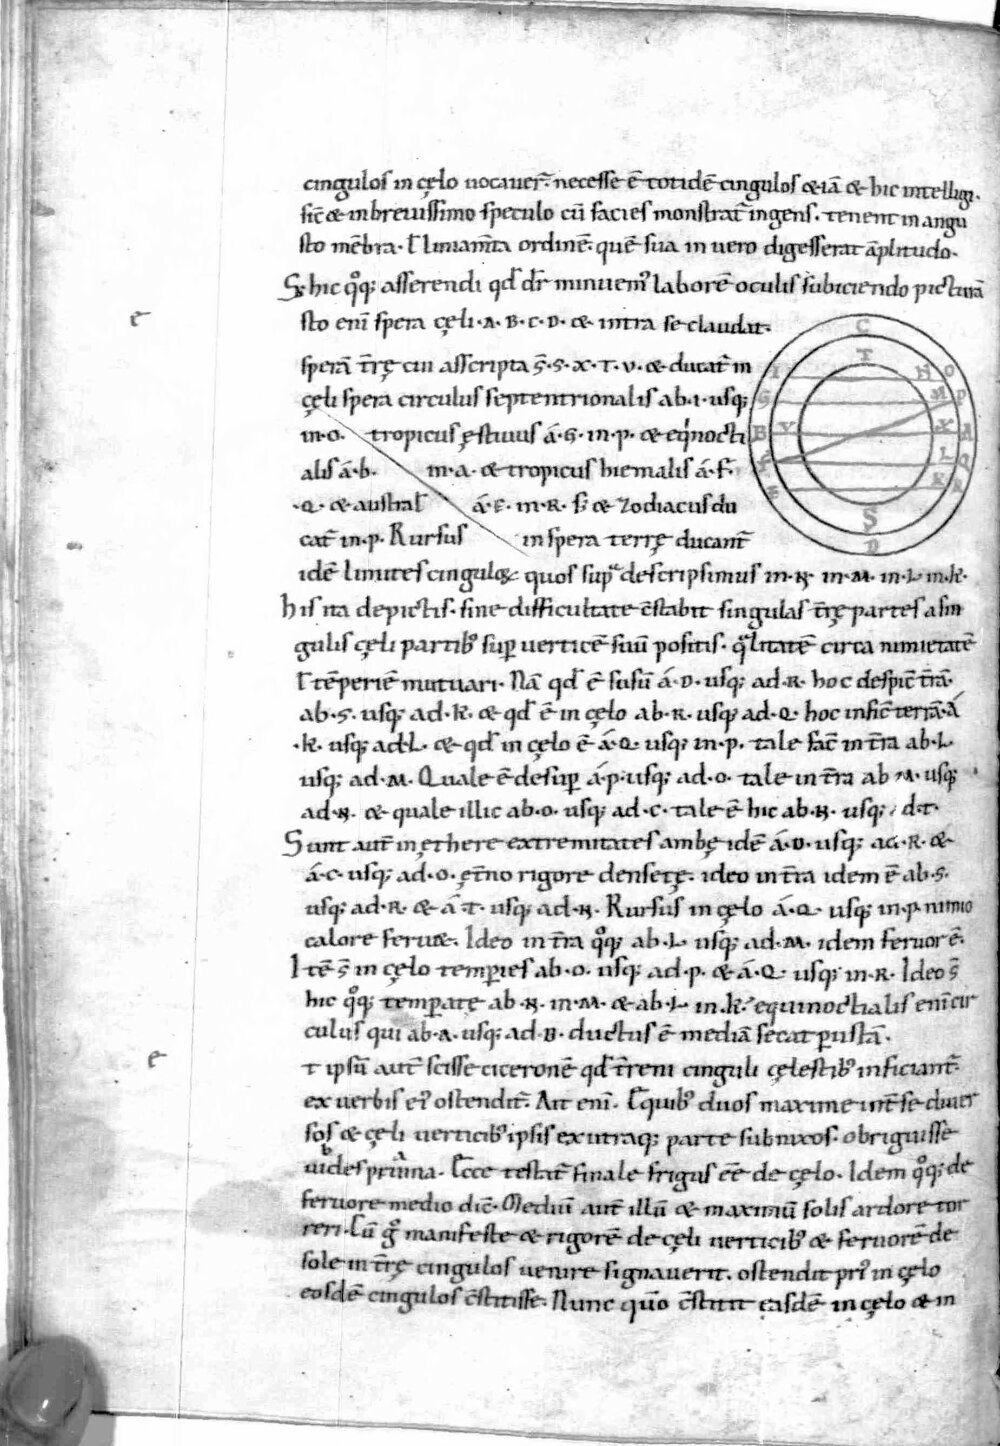 cingulos in cęlo uocauer̃. necesse ẽ totidẽ cingulos &iã & hic intelligi.
sic̃ & in breuissimo speculo cũ facies monstrat̃ ingens. tenent in angu
sto mẽbra. ł liniam̃ta ordinẽ. quẽ sua in uero digesserat ãplitudo.
S; hic qͦq; asserendi qd̃ dr̃ minuem᷒ laborẽ oculis subiciendo picturã
e
sto eni᷒ spera cęli. A. B. C. D. & intra se claudat.
sperã t̃rę cui asscripta s̃. S. X. T. V. & ducat̃ in
cęli spera circulus septentrionalis ab. I. usq;
in. O. tropicus ęstiuus á. G. in. P. & eq́nocti
alis á. B. in. A. & tropicus hiemalis á. F.
.Q. & austral̃ á. E. in. R. s; & zodiacus du
cat̃ in. P. Rursus in spera terrę ducant̃
idẽ limites cinguloꝝ quos supᵃ descripsimus in. N. in. M. in. L. in. K.
his ita depictis. sine difficultate c̃stabit singulas t̃rę partes a sin
gulis cęli partib᷒ sup̱ uerticẽ suũ positis. qͣlitatẽ circa nimietatẽ
ł tẽperiẽ mutuari. Nã qd̃ ẽ susũ á. D. usq; ad. R. hoc despic̃ t̃rã.
ab. S. usq; ad. K. & qd̃ ẽ in cęlo ab. R. usq; ad. Q. hoc infic̃ terrã. á
.K. usq; ad. L. & qd̃ in cęlo ẽ á. Q. usq; in. P. tale fac̃ in t̃ra ab. L
usq; ad. M. Quale ẽ desup̱ á. P. usq; ad. O. tale in t̃ra ab M. usq;
ad. N. & quale illic ab. O. usq; ad. C. tale ẽ hic ab. N. usq; d. T.
Sunt aut̃ in ęthere extremitates ambę idẽ á. D. usq; ad. R. &
á. C. usq; ad. O. ęt̃no rigore densetę. ideo in t̃ra idem ẽ ab. S.
usq; ad. K. & á. T. usq; ad. N. Rursus in cęlo á. Q. usq; in. P. nimio
calore feruet. Ideo in t̃ra qͦq; ab. L usq; ad. M. idem feruor ẽ.
Itẽ s̃ in cęlo temp̱ies ab. O. usq; ad. P. & á. Q. usq; in. R. Ideo s̃
hic qͦq; temp̱atę ab. N. in. M. & ab. L in. K. equinoctialis eni᷒ cir
culus qui ab. A. usq; ad. B. ductus ẽ mediã secat p̱ustã.
e
t ipsũ aut̃ scisse ciceronẽ qd̃ t̃reni cinguli cęlestib᷒ inficiant̃.
ex uerbis ei᷒ ostendit̃. Ait eni᷒. E quib᷒ duos maxime int̃ se diuer
sos & cęli uerticib᷒ ipsis ex utraq; parte subnixos. obriguisse
uides pruina. Ecce testat̃ finale frigus eẽ de cęlo. Idem qͦq; de
feruore medio dic̃. Mediũ aut̃ illũ & maximũ solis ardore tor
reri. Cũ gͦ manifeste & rigorẽ de cęli uerticib᷒ & feruorẽ de
sole in t̃rę cingulos uenire signauerit. ostendit pri᷒ in cęlo
eosdẽ cingulos c̃stitisse. Nunc quõ c̃stitit easdẽ in cęlo & in
C
T
I N O
G M P
B V X A
F L Q
E K R
S
D